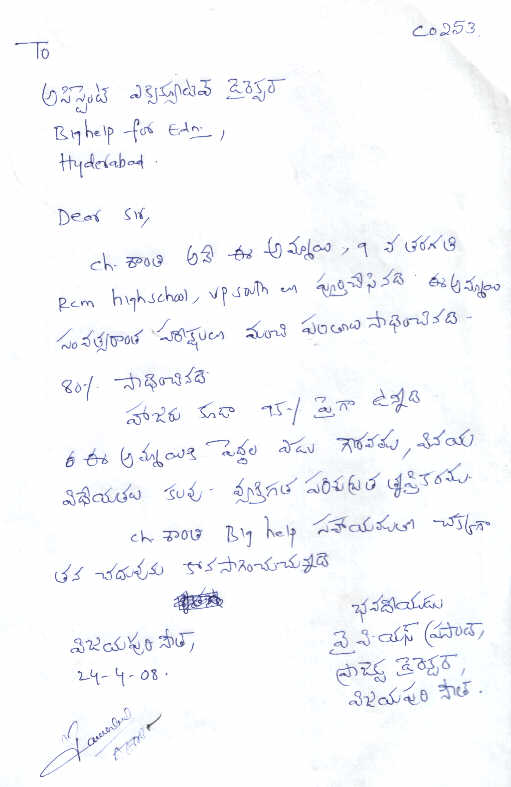 CO253
To
అసిస్టెంట్ ఎక్సిక్యూటివ్ డైరెక్టర్
Big help for Edn.,
Hyderabad.
Dear Sir,
ch. శాంతి అనే ఈ అమ్మాయి, 9 వ తరగతి
Rcm highschool, vp south లో పూర్తిచేసినది ఈ అమ్మాయి
సంవత్సరాంత పరీక్షలలో మంచి ఫలితాలు సాధించినది -
80% సాధించినది
హాజరు కూడా 95% పైగా ఉన్నది
ఈ అమ్మాయికి పెద్దల ఎడల గౌరవము, వినయ
విధేయతలు కలవు - వ్యక్తిగత పరిశుభ్రత తృప్తికరము.
ch. శాంతి Big help సహాయముతో చక్కగా
తన చదువును కొనసాగించుచున్నది
భవదీయుడు
విజయపురి సౌత్,
వై పి యస్ ప్రసాద్,
24-4-08.
ప్రాజెక్టు డైరెక్టర్,
విజయపురి సౌత్.